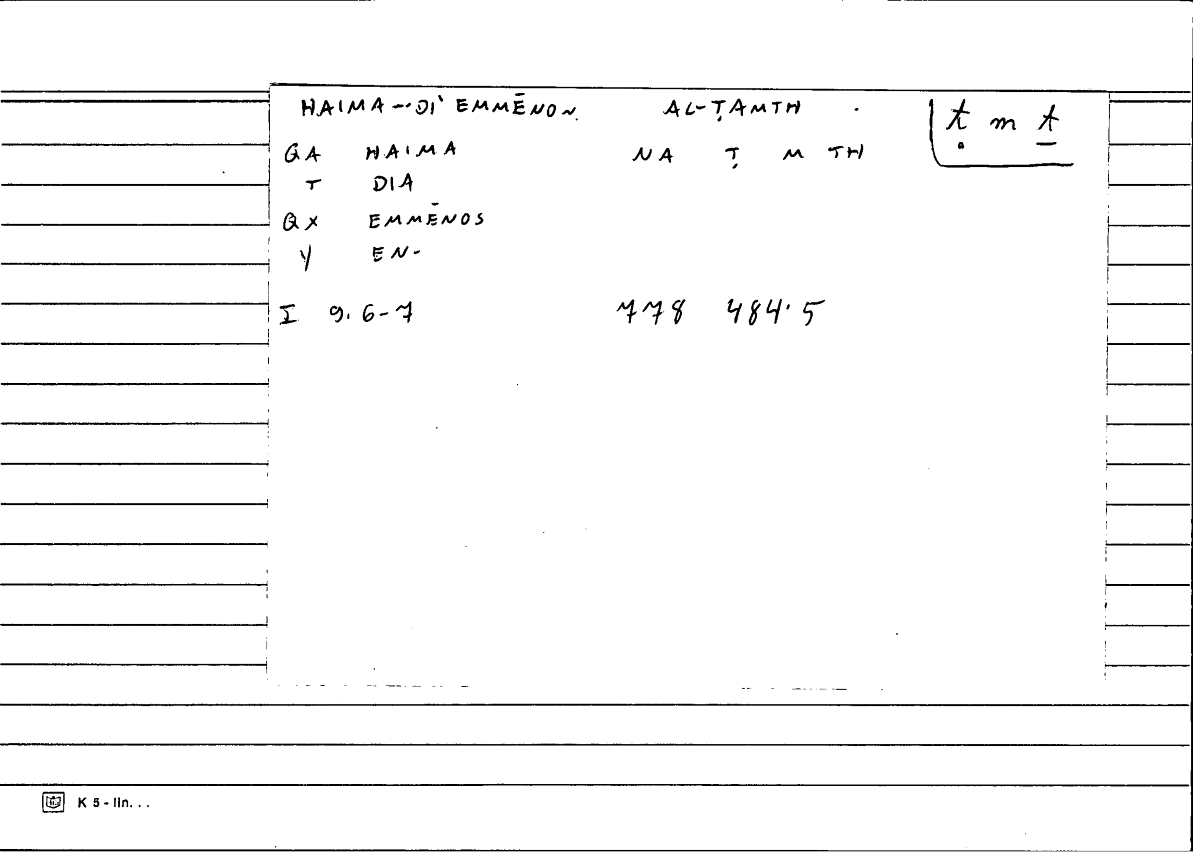 HAIMA--DI' EMMĒNON. AL-ṬAMTH . ṭ m ṯ
QA HAIMA NA Ṭ M TH
T DIA
QX EMMĒNOS
Y EN-
I 9.6-7 778 484.5
K 5 - lin. . .